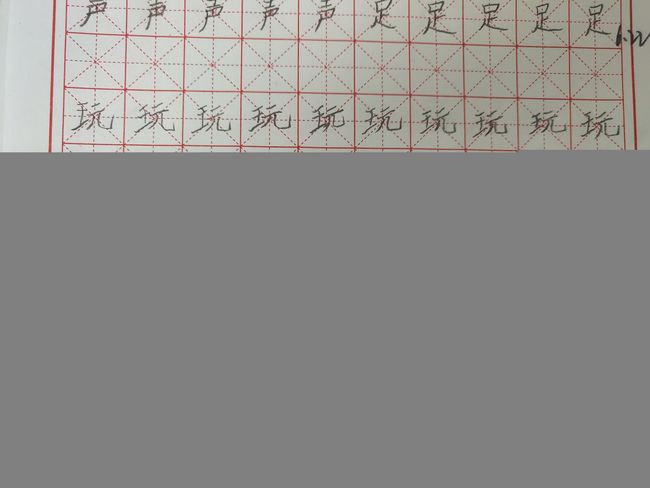 声声声声声足足足足足
1.22
玩玩玩玩玩玩玩玩玩玩